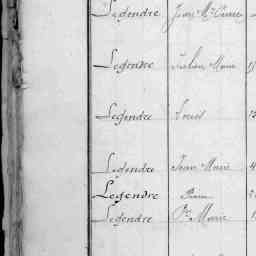 Legendre Jean Mie Pierre
Legendre Julien Marie
Legendre Louis
Legendre Jean Marie
Legendre Pierre
Legendre Pre Marie